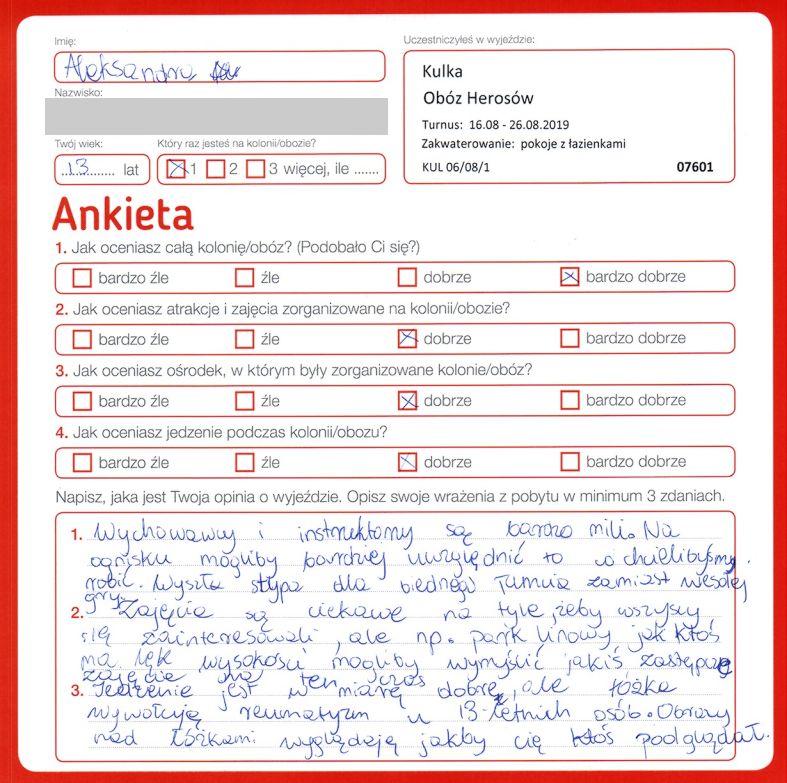 Imię:
Aleksandra
Nazwisko:
Twój wiek:
13 lat
Który raz jesteś na kolonii/obozie?
1 2 3 więcej, ile .......
Uczestniczyłeś w wyjeździe:
Kulka
Obóz Herosów
Turnus: 16.08 - 26.08.2019
Zakwaterowanie: pokoje z łazienkami
KUL 06/08/1 07601
Ankieta
1. Jak oceniasz całą kolonię/obóz? (Podobało Ci się?)
bardzo źle źle dobrze bardzo dobrze
2. Jak oceniasz atrakcje i zajęcia zorganizowane na kolonii/obozie?
bardzo źle źle dobrze bardzo dobrze
3. Jak oceniasz ośrodek, w którym były zorganizowane kolonie/obóz?
bardzo źle źle dobrze bardzo dobrze
4. Jak oceniasz jedzenie podczas kolonii/obozu?
bardzo źle źle dobrze bardzo dobrze
Napisz, jaka jest Twoja opinia o wyjeździe. Opisz swoje wrażenia z pobytu w minimum 3 zdaniach.
1. Wychowawcy i instruktorzy są bardzo mili. Na
ognisku mogliby bardziej uwzględnić to co chcielibyśmy
robić. Wyszła stypa dla biednego Tumua zamiast wesołej
gry.
2. Zajęcia są ciekawe na tyle, żeby wszyscy
się zainteresowali, ale np. park linowy jak ktoś
ma lęk wysokości mogliby wymyślić jakiś zastępcze
zajęcie na ten czas
3. Jedzenie jest w miarę dobre, ale łóżka
wywołują reumatyzm u 13-letnich osób. Obrazy
nad łóżkami wyglądają jakby cię ktoś podglądał.